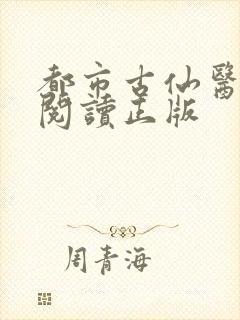 都市古仙醫
閱讀正版
周青海